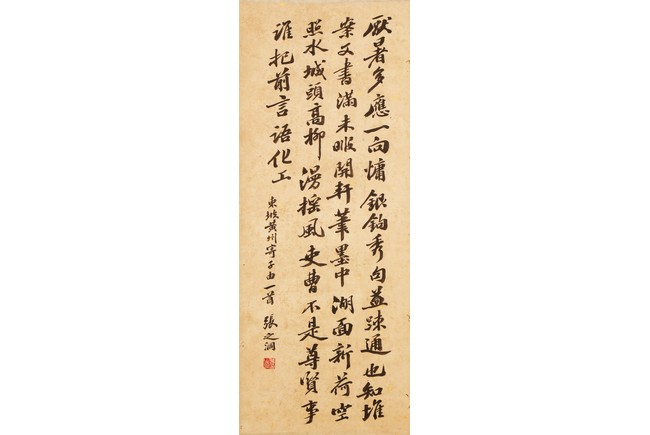 厭暑多應一向慵銀鈎秀句益疎通也知堆
案文書滿未暇開軒筆墨中湖面新荷空
照水城頭高柳漫搖風吏曹不是尊賢事
誰把前言語化工
東坡黃州寄子由一首 張之洞